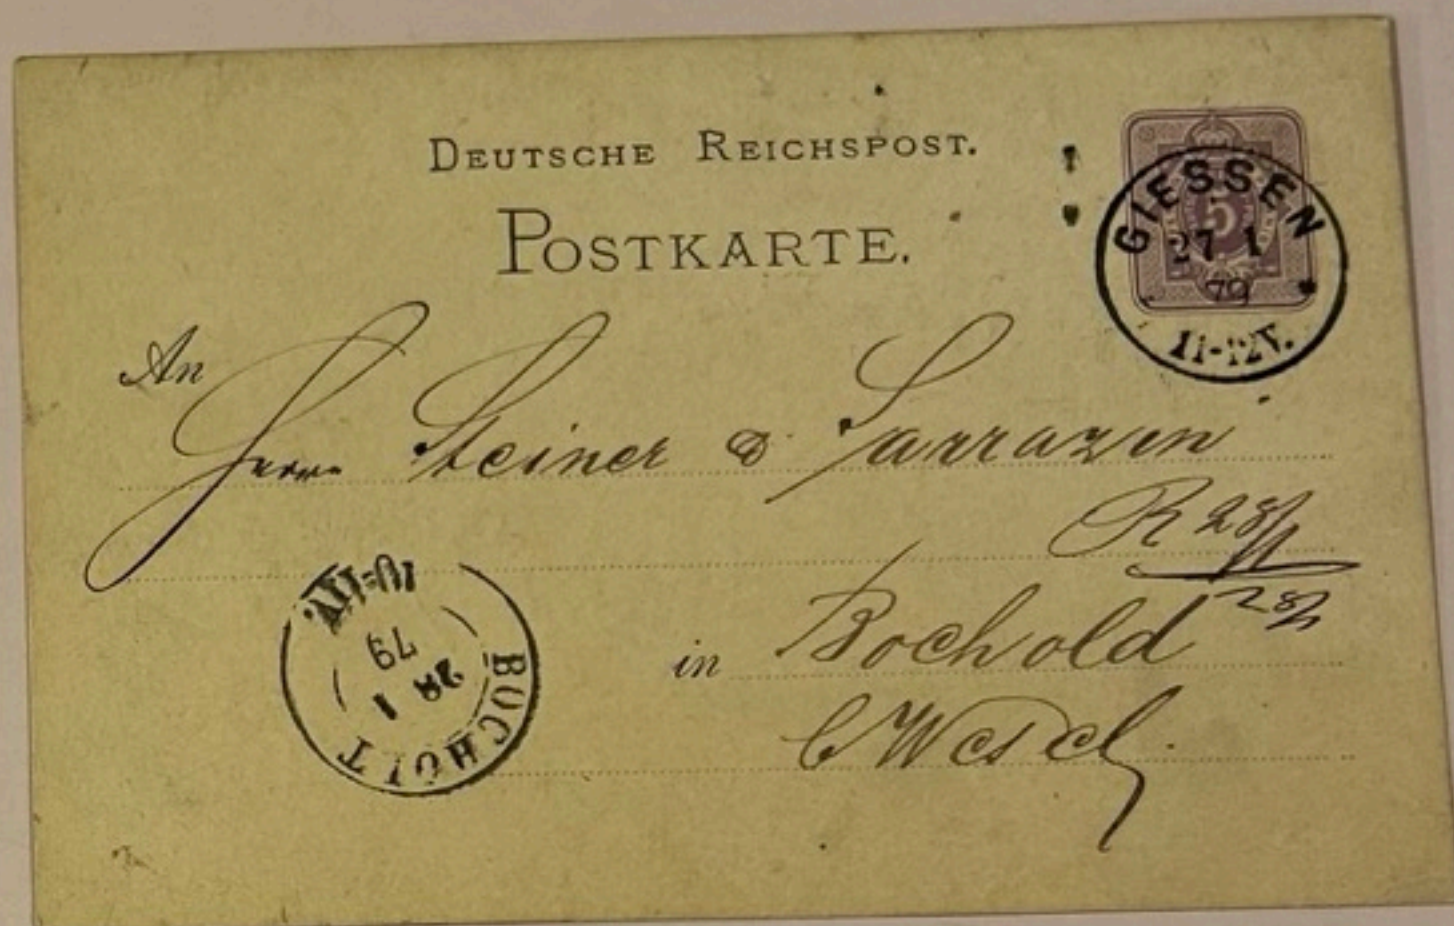 DEUTSCHE REICHSPOST.
POSTKARTE.
5
GIESSEN
27 1
79
11-12V.
An
Herrn Steiner & Sarrazin
R 28/1
28/1
in Bochold
b/Wesel.
BOCHOLT
28 1
79
10-11V.